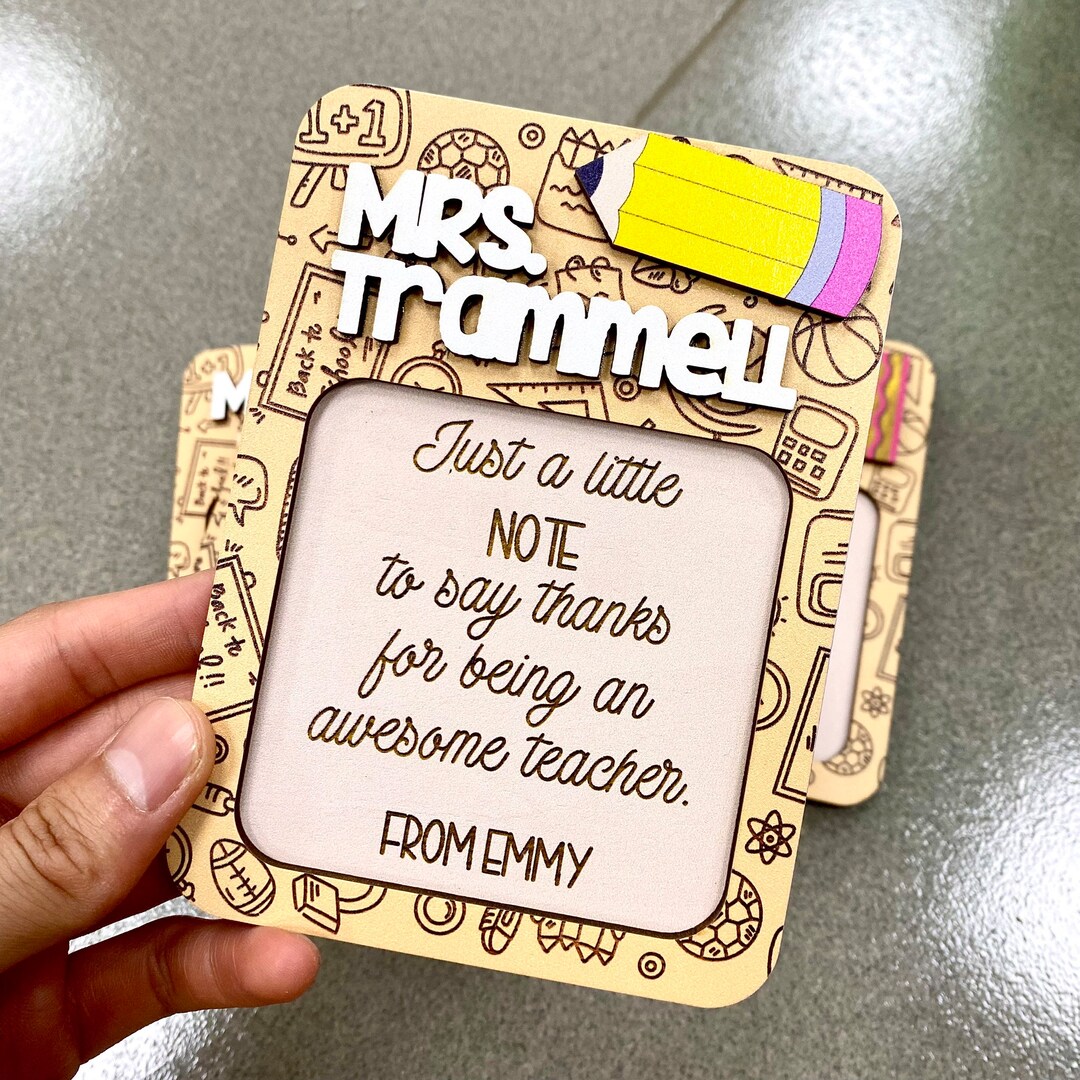 1+1
MRS.
Trammell
Back to
School
Just a little
NOTE
to say thanks
for being an
awesome teacher.
FROM EMMY
Back to
Back to
M